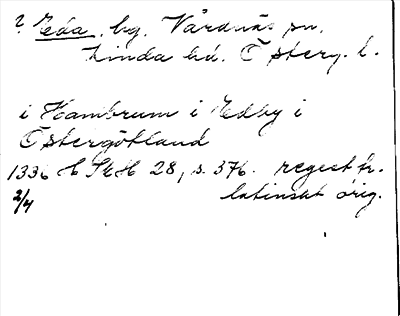 ? Eda, by. Vårdnäs sn.
Kinda hd. Österg. l.
i Hambrum i Edby i
Östergötland
1336 A SkH 28, s. 376. regest fr.
2/4 latinskt orig.